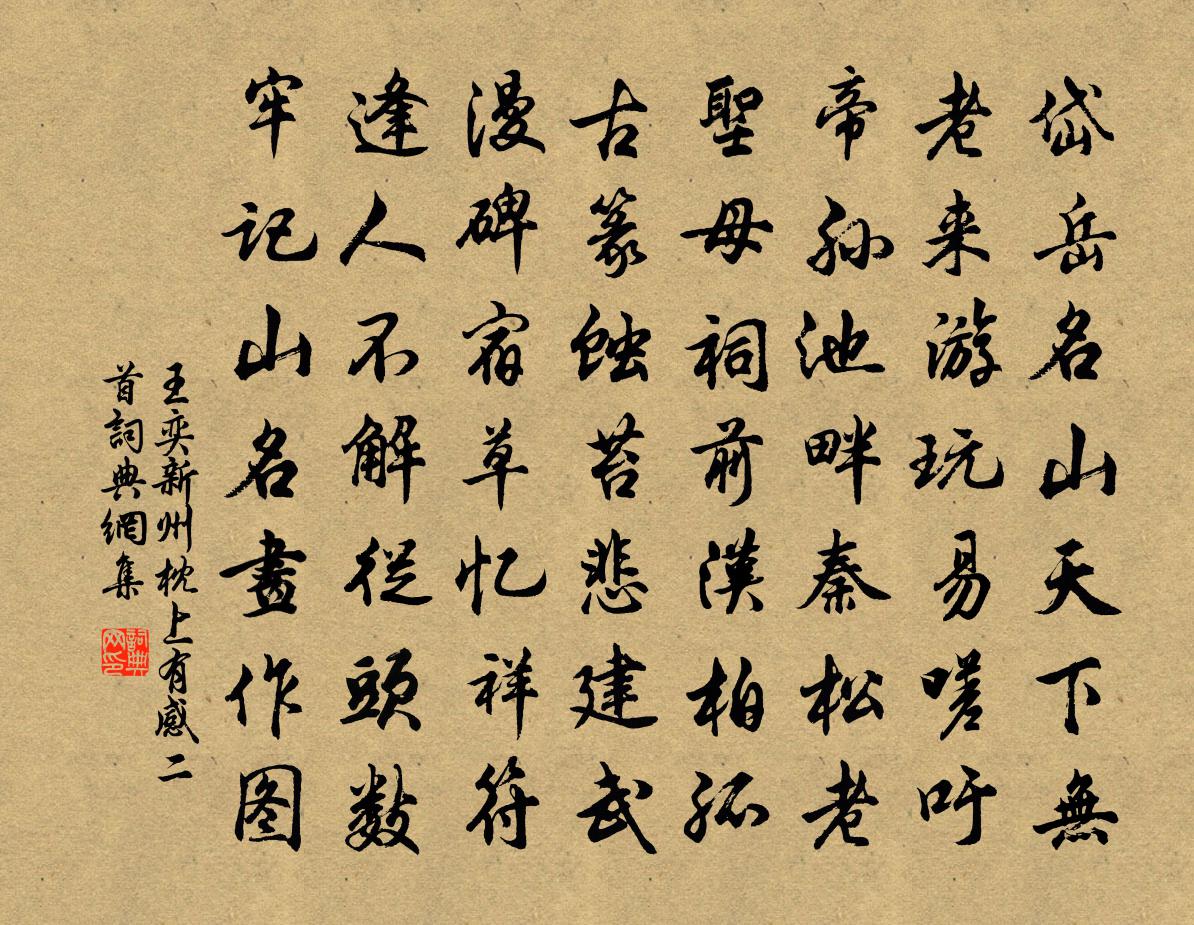 岱岳名山天下無
老来游玩易嗟吁
帝孙池畔秦松老
聖母祠前漢柏孤
古篆蚀苔悲建武
漫碑宿草忆祥符
逢人不解從頭数
牢记山名畫作图
王奕新州枕上有感二
首詞典網集
詞典网印